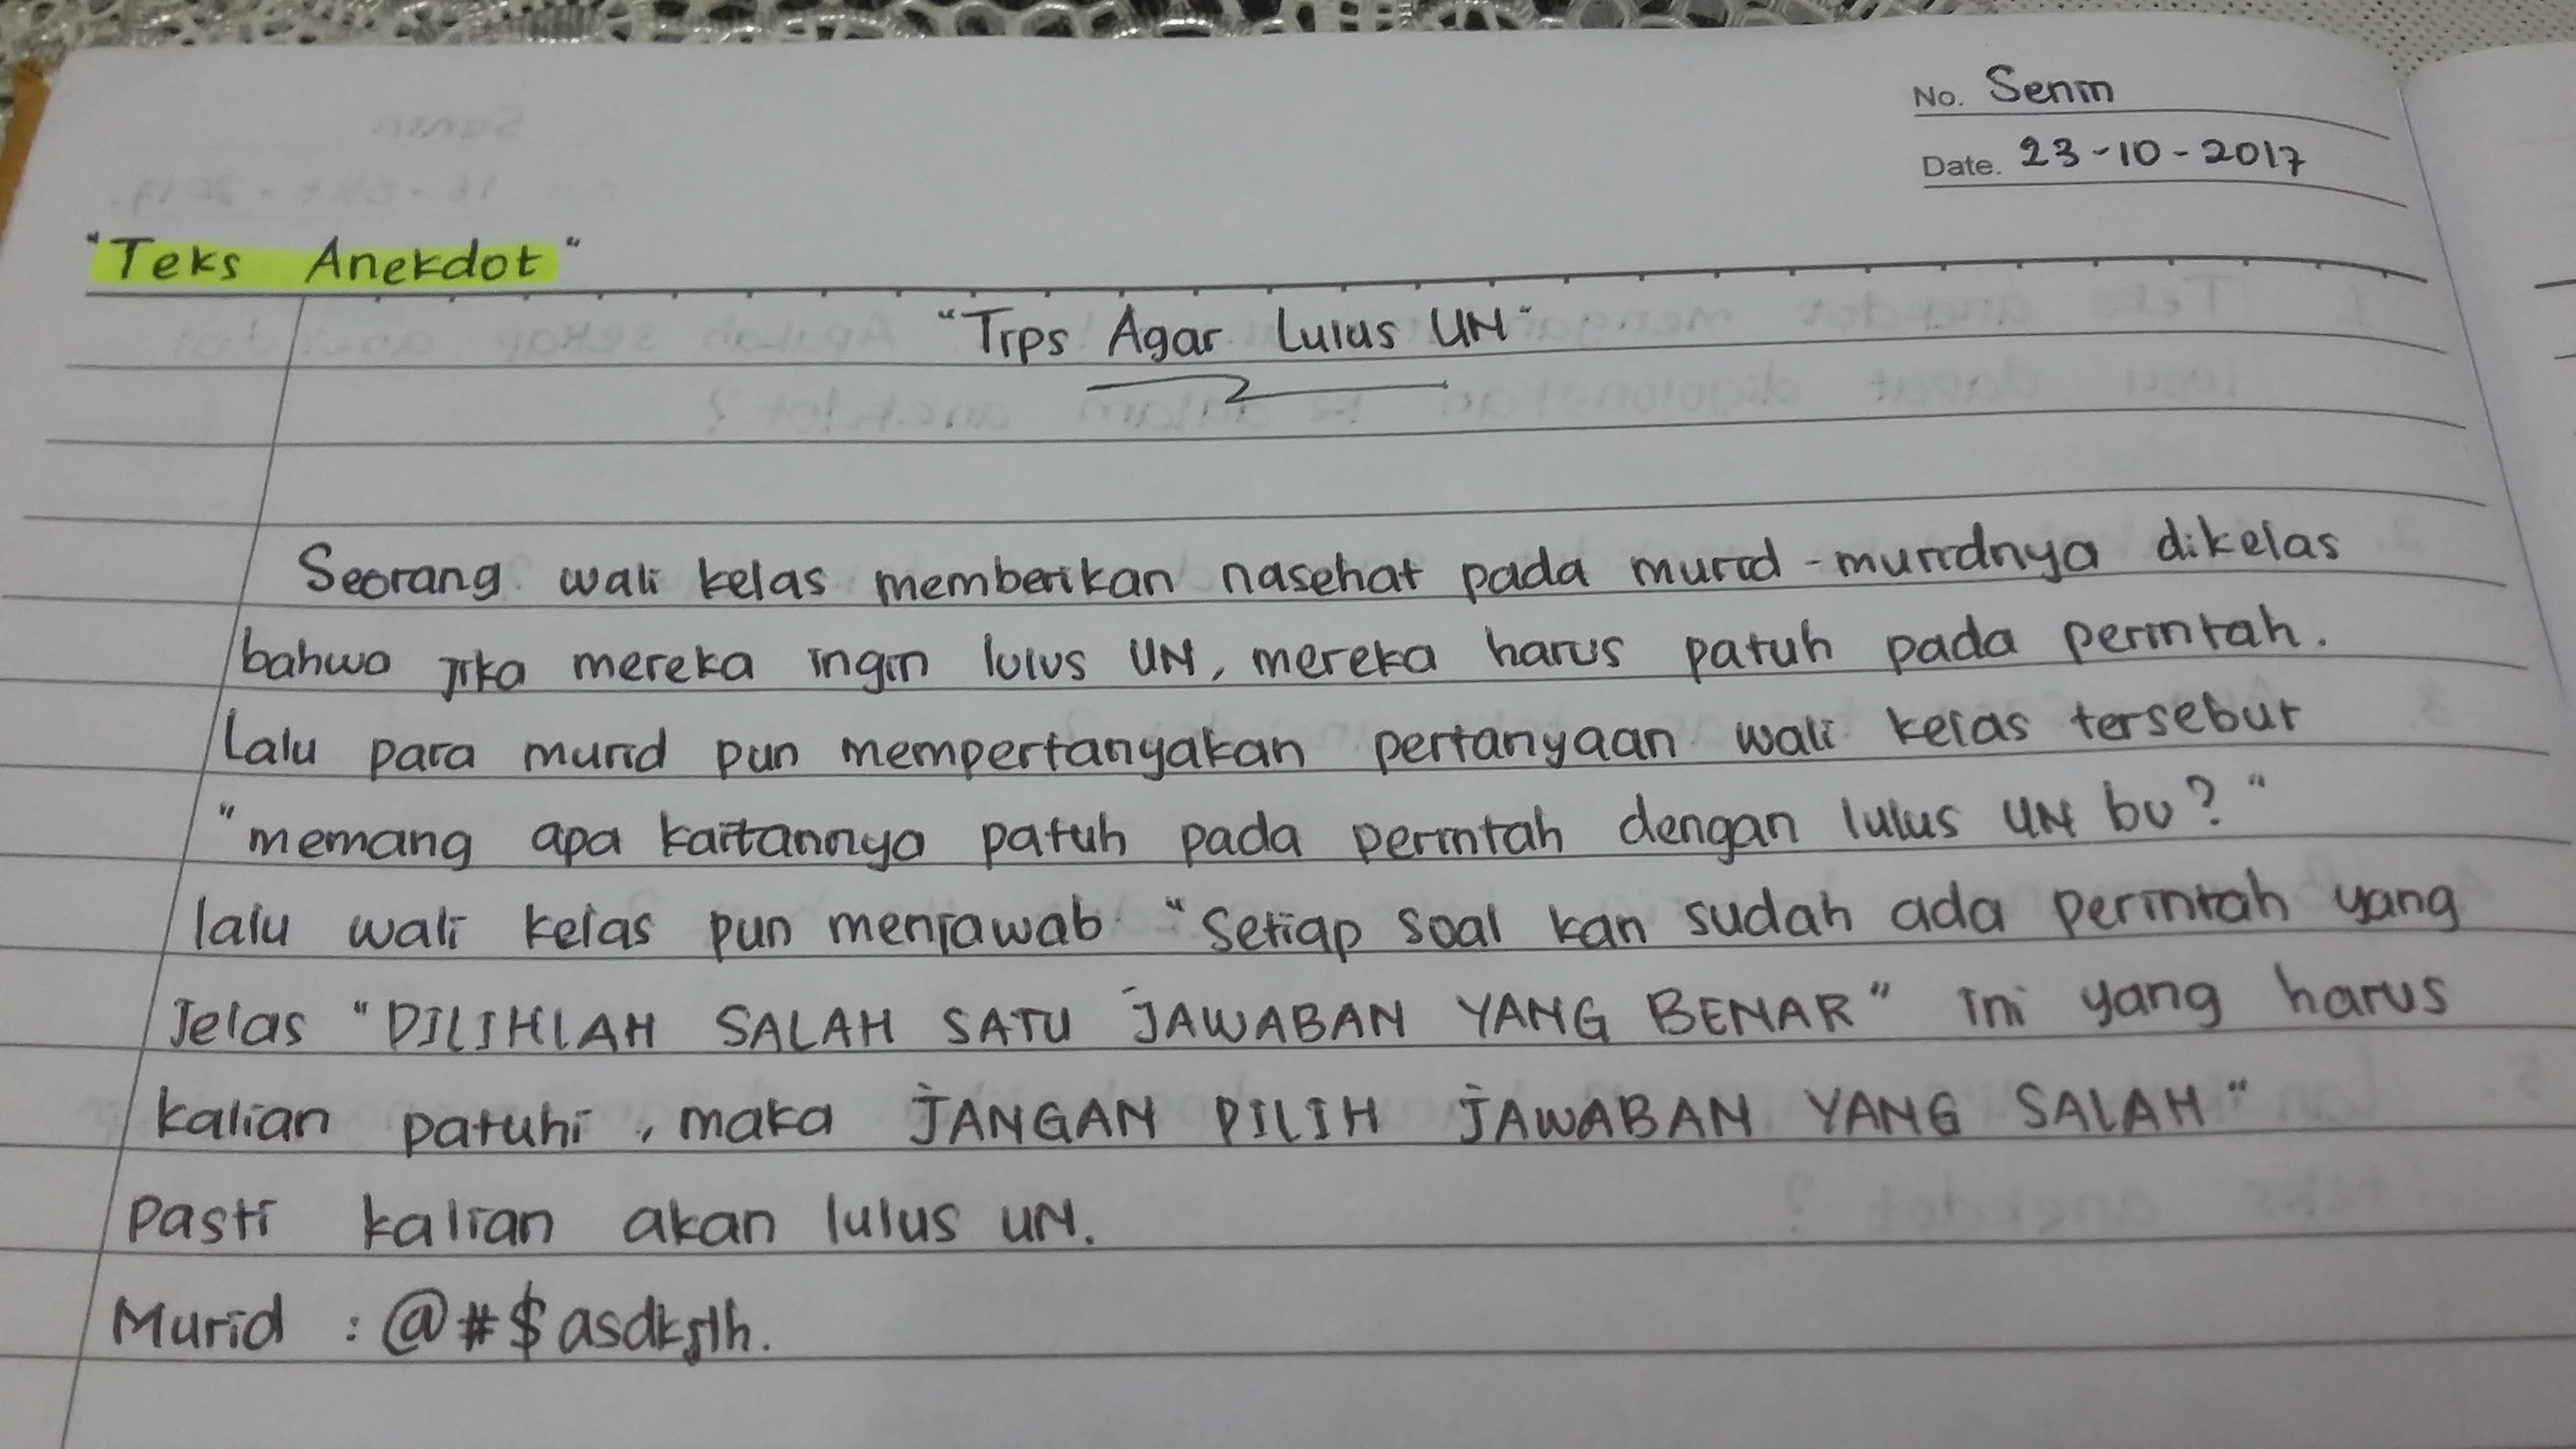 No. Senin
Date. 23-10-2017
"Teks Anekdot"
"Tips Agar Lulus UN"
Seorang wali kelas memberikan nasehat pada murid-muridnya dikelas
bahwa jika mereka ingin lulus UN, mereka harus patuh pada perintah.
Lalu para murid pun mempertanyakan pertanyaan wali kelas tersebut
"memang apa kaitannya patuh pada perintah dengan lulus UN bu?"
lalu wali kelas pun menjawab "Setiap soal kan sudah ada perintah yang
Jelas "PILIHLAH SALAH SATU JAWABAN YANG BENAR" ini yang harus
kalian patuhi, maka JANGAN PILIH JAWABAN YANG SALAH"
Pasti kalian akan lulus UN.
Murid : @#$asdkjlh.